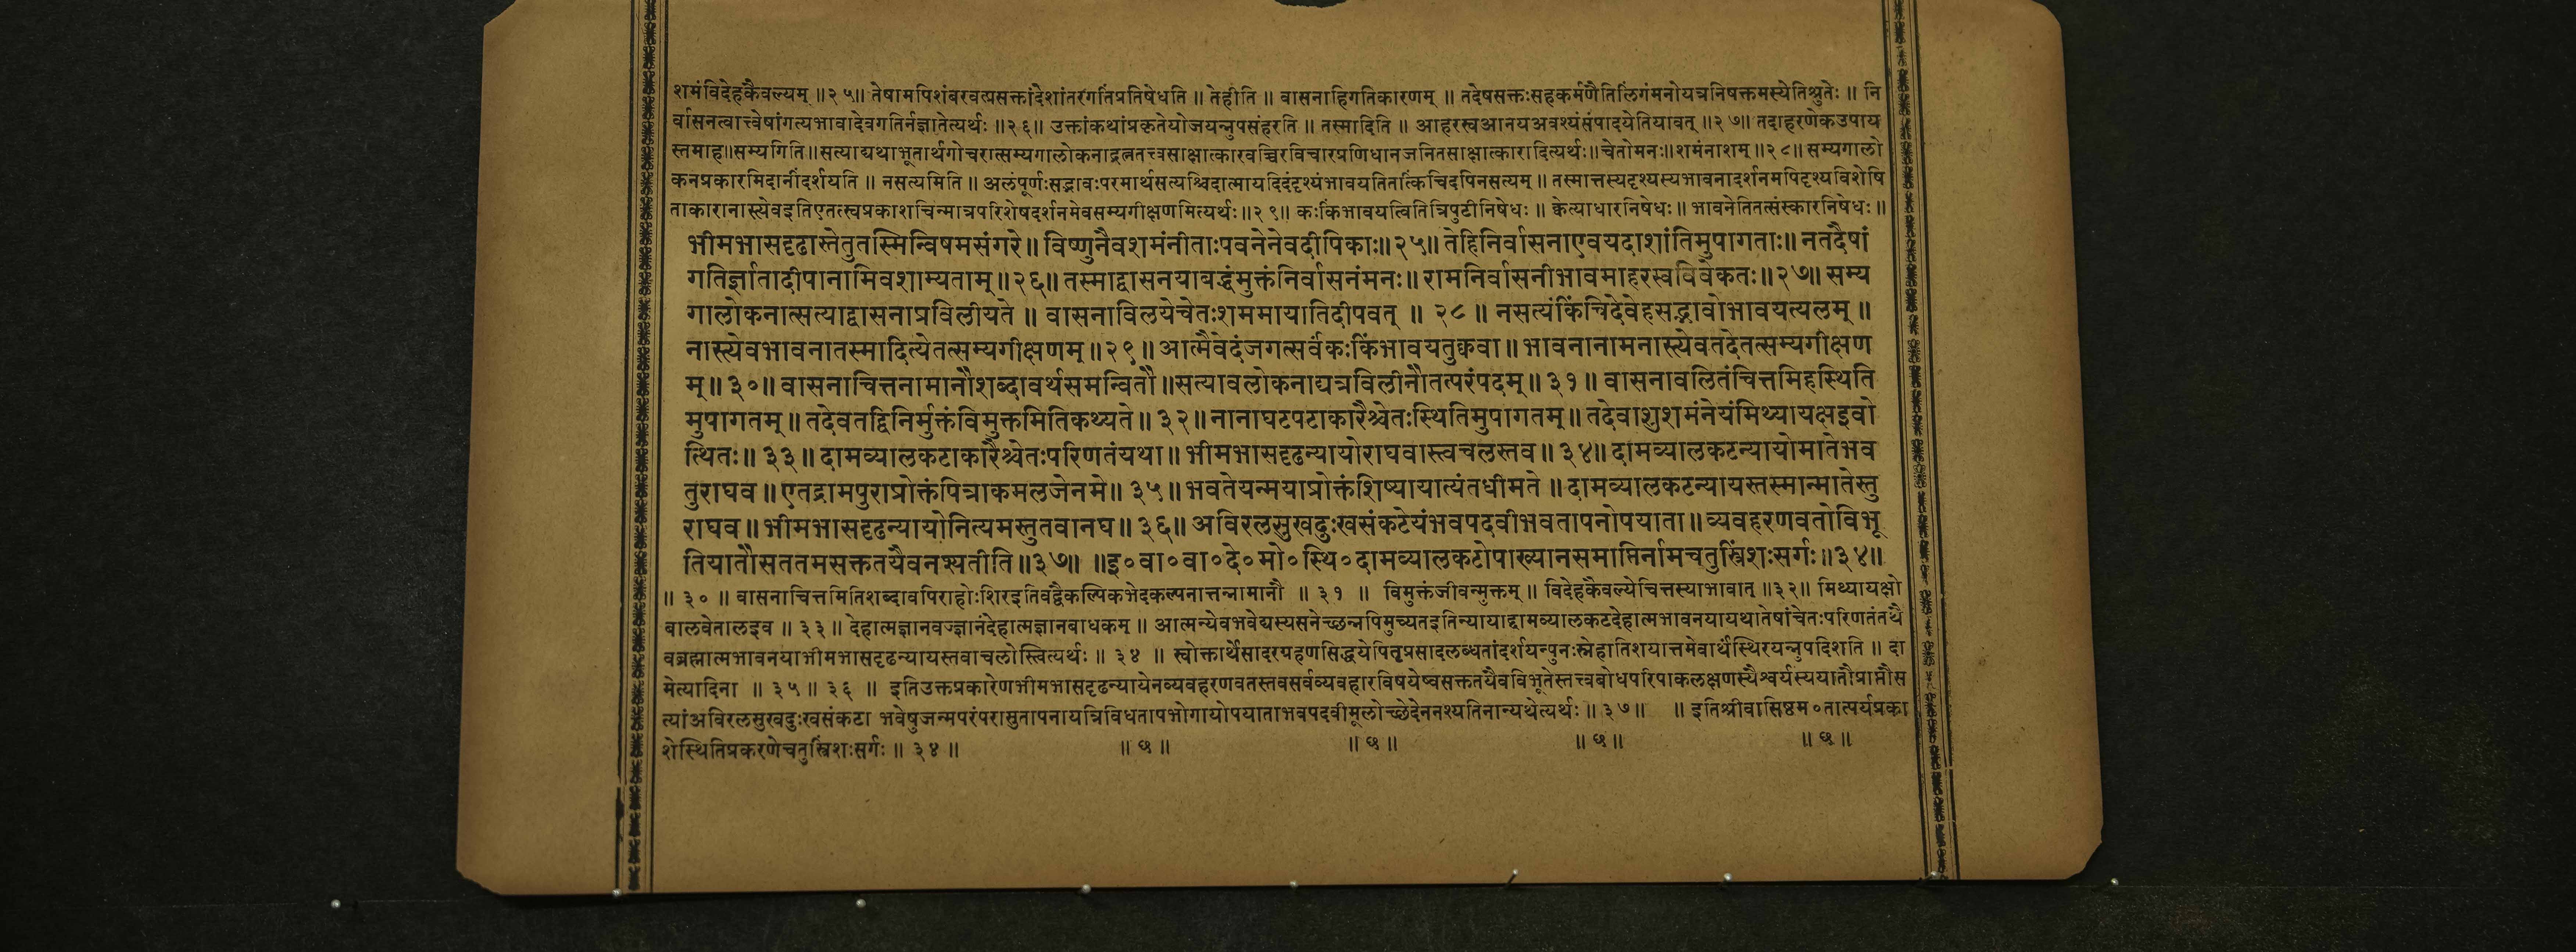 शमंविदेहकैवल्यम् ॥२५॥ तेषामपिशंबरवत्प्रसक्तांदेशांतरगतिंप्रतिषेधति ॥ तेहीति ॥ वासनाहिगतिकारणम् ॥ तदेषसक्तःसहकर्मणैतिलिंगंमनोयत्रनिषक्तमस्येतिश्रुतेः ॥ नि
र्वासनत्वात्त्वेषांगत्यभावादेवगतिर्नज्ञातेत्यर्थः ॥२६॥ उक्तांकथांप्रकृतेयोजयन्नुपसंहरति ॥ तस्मादिति ॥ आहरस्वआनयअवश्यंसंपादयेतियावत् ॥२७॥ तदाहरणेकउपाय
स्तमाह॥सम्यगिति॥सत्याद्यथाभूतार्थगोचरात्सम्यगालोकनाद्रत्नतत्त्वसाक्षात्कारवच्चिरविचारप्रणिधानजनितसाक्षात्कारादित्यर्थः॥चेतोमनः॥शमंनाशम्॥२८॥ सम्यगालो
कनप्रकारमिदानींदर्शयति ॥ नसत्यमिति ॥ अलंपूर्णःसद्भावःपरमार्थसत्यश्चिदात्मायदिदंदृश्यंभावयतितत्किंचिदपिनसत्यम् ॥ तस्मात्तस्यदृश्यस्यभावनादर्शनमपिदृश्यविशेषि
ताकारानास्त्येवइतिएतत्स्वप्रकाशचिन्मात्रपरिशेषदर्शनमेवसम्यगीक्षणमित्यर्थः॥२९॥ कःकिंभावयत्वितित्रिपुटीनिषेधः ॥ क्वेत्याधारनिषेधः॥ भावनेतितत्संस्कारनिषेधः॥
भीमभासदृढास्तेतुतस्मिन्विषमसंगरे॥ विष्णुनैवशमंनीताःपवनेनेवदीपिकाः॥२५॥ तेहिनिर्वासनाएवयदाशांतिमुपागताः॥ नतदैषां
गतिर्ज्ञातादीपानामिवशाम्यताम्॥२६॥ तस्माद्वासनयाबद्धंमुक्तंनिर्वासनंमनः॥ रामनिर्वासनीभावमाहरस्वविवेकतः॥२७॥ सम्य
गालोकनात्सत्याद्वासनाप्रविलीयते ॥ वासनाविलयेचेतःशममायातिदीपवत् ॥ २८ ॥ नसत्यंकिंचिदेवेहसद्भावोभावयत्यलम् ॥
नास्त्येवभावनातस्मादित्येतत्सम्यगीक्षणम्॥२९॥ आत्मैवेदंजगत्सर्वंकःकिंभावयतुक्ववा॥ भावनानामनास्त्येवतदेतत्सम्यगीक्षण
म्॥ ३०॥ वासनाचित्तनामानौशब्दावर्थसमन्वितौ॥सत्यावलोकनाद्यत्रविलीनौतत्परंपदम्॥ ३१॥ वासनावलितंचित्तमिहस्थिति
मुपागतम्॥ तदेवतद्विनिर्मुक्तंविमुक्तमितिकथ्यते॥ ३२॥ नानाघटपटाकारैश्चेतःस्थितिमुपागतम्॥ तदेवाशुशमंनेयंमिथ्यायक्षइवो
त्थितः॥ ३३॥ दामव्यालकटाकारैश्चेतःपरिणतंयथा॥ भीमभासदृढन्यायोराघवास्त्वचलस्तव॥ ३४॥ दामव्यालकटन्यायोमातेभव
तुराघव॥ एतद्रामपुराप्रोक्तंपित्राकमलजेनमे॥ ३५॥ भवतेयन्मयाप्रोक्तंशिष्यायात्यंतधीमते ॥ दामव्यालकटन्यायस्तस्मान्मातेस्तु
राघव॥ भीमभासदृढन्यायोनित्यमस्तुतवानघ॥ ३६॥ अविरलसुखदुःखसंकटेयंभवपदवीभवतापनोपयाता॥ व्यवहरणवतोविभू
तियातौसततमसक्ततयैवनश्यतीति॥३७॥ ॥इ०वा०वा०दे०मो०स्थि०दामव्यालकटोपाख्यानसमाप्तिर्नामचतुस्त्रिंशःसर्गः॥३४॥
॥ ३० ॥ वासनाचित्तमितिशब्दावपिराहोःशिरइतिवद्वैकल्पिकभेदकल्पनात्तन्नामानौ ॥ ३१ ॥ विमुक्तंजीवन्मुक्तम् ॥ विदेहकैवल्येचित्तस्याभावात् ॥३२॥ मिथ्यायक्षो
बालवेतालइव ॥ ३३॥ देहात्मज्ञानवज्ज्ञानंदेहात्मज्ञानबाधकम् ॥ आत्मन्येवभवेद्यस्यसनेच्छन्नपिमुच्यतइतिन्यायाद्दामव्यालकटदेहात्मभावनयायथातेषांचेतःपरिणतंतथै
वब्रह्मात्मभावनयाभीमभासदृढन्यायस्तवाचलोस्त्वित्यर्थः ॥ ३४ ॥ स्वोक्तार्थेसादरग्रहणसिद्धयेपितृप्रसादलब्धतांदर्शयन्पुनःस्नेहातिशयात्तमेवार्थंस्थिरयन्नुपदिशति ॥ दा
मेत्यादिना ॥ ३५॥ ३६ ॥ इतिउक्तप्रकारेणभीमभासदृढन्यायेनव्यवहरणवतस्तवसर्वव्यवहारविषयेष्वसक्ततयैवविभूतेस्तत्त्वबोधपरिपाकलक्षणस्यैश्वर्यस्ययातौप्राप्तौस
त्यांअविरलसुखदुःखसंकटा भवेषुजन्मपरंपरासुतापनायत्रिविधतापभोगायोपयाताभवपदवीमूलोच्छेदेननश्यतिनान्यथेत्यर्थः॥ ३७॥ ॥ इतिश्रीवासिष्ठम०तात्पर्यप्रका
शेस्थितिप्रकरणेचतुस्त्रिंशःसर्गः ॥ ३४ ॥ ॥ छ ॥ ॥ छ ॥ ॥ छ ॥ ॥ छ ॥